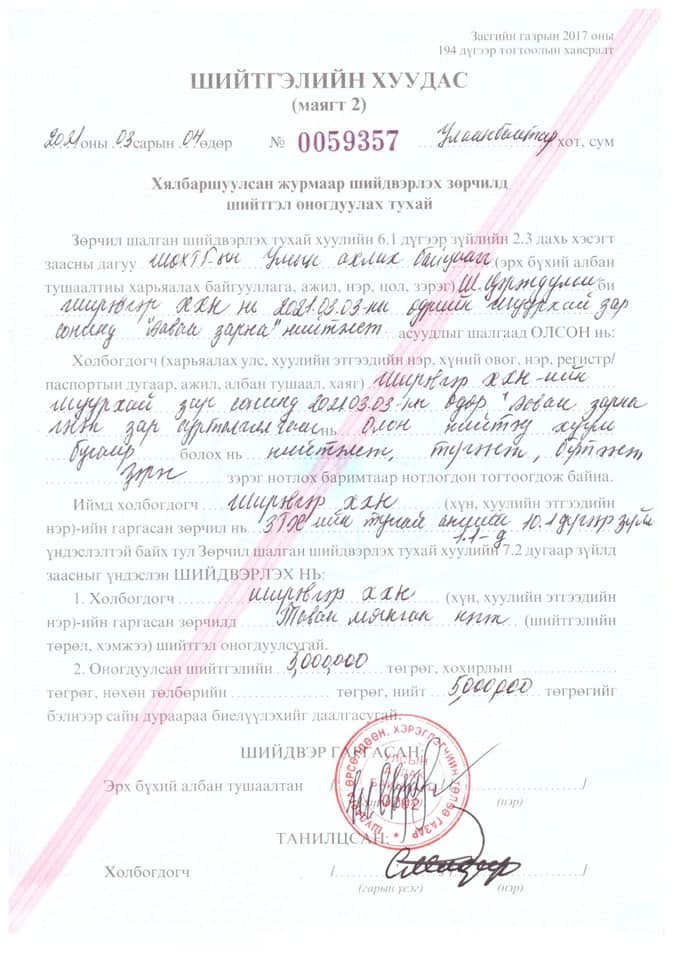 Засгийн газрын 2017 оны
194 дүгээр тогтоолын хавсралт
ШИЙТГЭЛИЙН ХУУДАС
(маягт 2)
2021 оны 03 сарын 04 өдөр № 0059357 Улаанбаатар хот, сум
Хялбаршуулсан журмаар шийдвэрлэх зөрчилд
шийтгэл оногдуулах тухай
Зөрчил шалган шийдвэрлэх тухай хуулийн 6.1 дүгээр зүйлийн 2.3 дахь хэсэгт
заасны дагуу ШӨХТГ-ын Улсын ахлах байцаагч (эрх бүхий албан
тушаалтны харьяалах байгууллага, ажил, нэр, цол, зэрэг) Ш. би
Ширэвгэр ХХН нь 2021.03.03-ны өдрийн шуурхай зар
сонинд "зарна" нийтлэл асуудлыг шалгаад ОЛСОН нь:
Холбогдогч (харьяалах улс, хуулийн этгээдийн нэр, хүний овог, нэр, регистр/
паспортын дугаар, ажил, албан тушаал, хаяг) Ширэвгэр ХХН-ийн
шуурхай зар сонинд 2021.03.03-ны өдөр " зарна
гэсэн зар сурталчилгааг нь Олон нийтэд хууль
бусаар болох нь нийтлэх, түгээх,
зэрэг зэрэг нотлох баримтаар нотлогдон тогтоогдож байна.
Иймд холбогдогч Ширэвгэр ХХН (хүн, хуулийн этгээдийн
нэр)-ийн гаргасан зөрчил нь ЗТХ-ийн тусгай ангийн 10.1 дүгээр зүйл
1.1-д
үндэслэлтэй байх тул Зөрчил шалган шийдвэрлэх тухай хуулийн 7.2 дугаар зүйлд
заасныг үндэслэн ШИЙДВЭРЛЭХ НЬ:
1. Холбогдогч Ширэвгэр ХХН (хүн, хуулийн этгээдийн
нэр)-ийн гаргасан зөрчилд Таван мянган нэгж (шийтгэлийн
төрөл, хэмжээ) шийтгэл оногдуулсугай.
2. Оногдуулсан шийтгэлийн 5,000,000 төгрөг, хохирлын
төгрөг, нөхөн төлбөрийн төгрөг, нийт 5,000,000 төгрөгийг
бэлнээр сайн дураараа биелүүлэхийг даалгасугай.
ШИЙДВЭР ГАРГАСАН:
Эрх бүхий албан тушаалтан / / /
(нэр)
ШУДАРГА ӨРСӨЛДӨӨН, ХЭРЭГЛЭГЧИЙН ТӨЛӨӨ ГАЗАР
УЛСЫН
0202
ТАНИЛЦСАН:
Холбогдогч / / /
(гарын үсэг) (нэр)